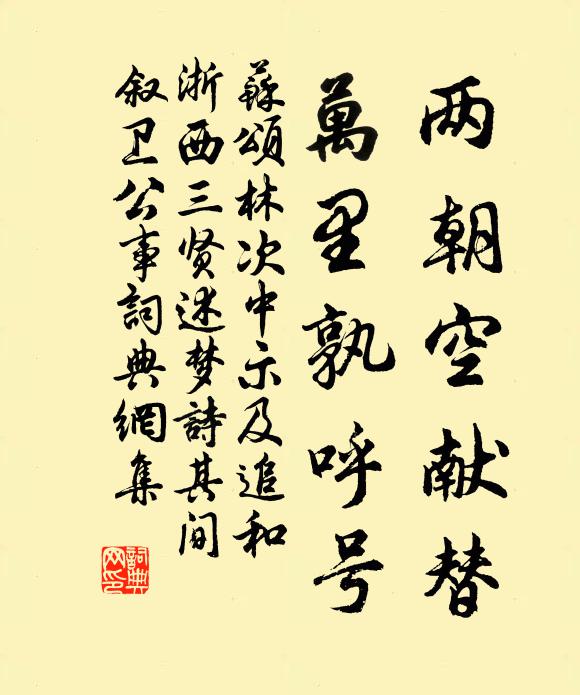 两朝空献替
萬里孰呼号
蘇頌林次中示及追和
浙西三贤述梦詩其间
叙卫公事詞典網集
詞典网印